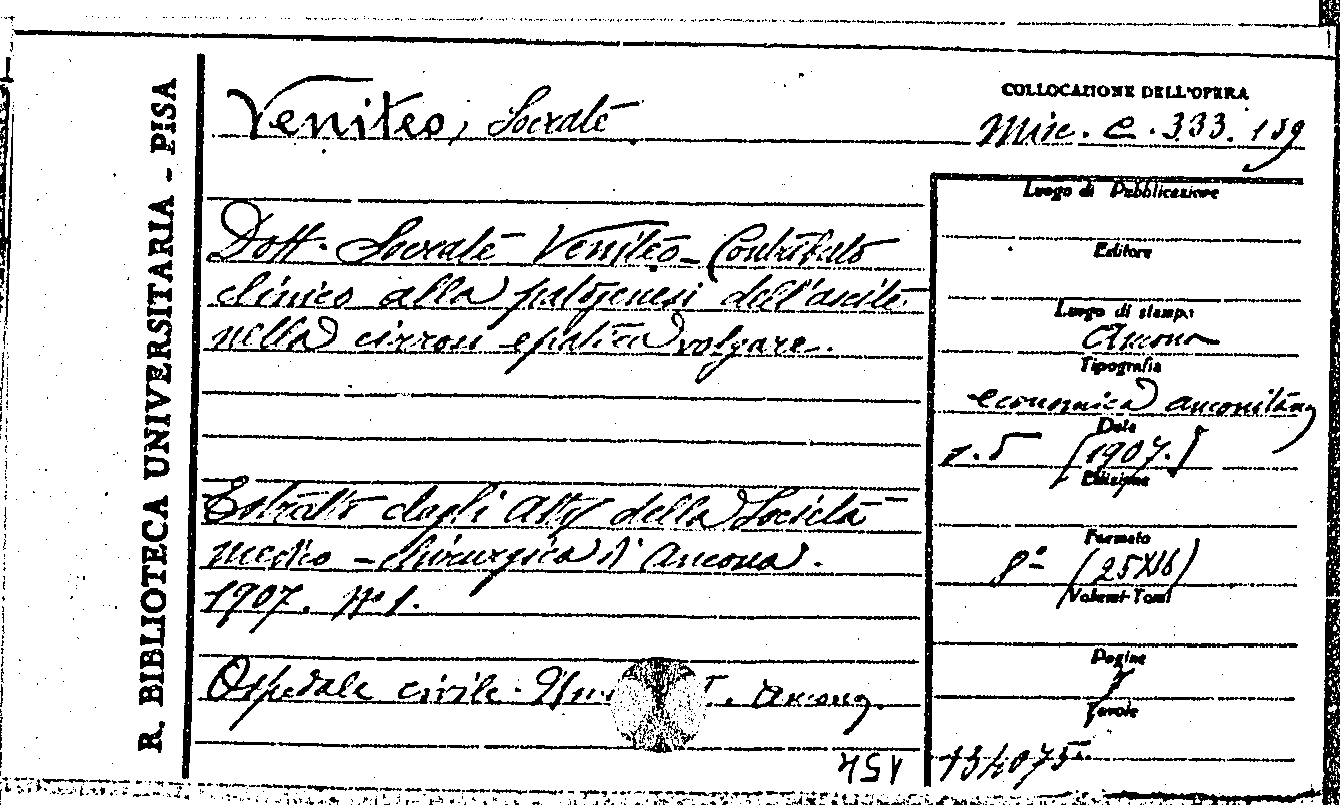 R. BIBLIOTECA UNIVERSITARIA - PISA
Veniteo, Socrate
COLLOCAZIONE DELL'OPERA
Misc. C. 333. 189
Dott. Socrate Veniteo - Contributo
clinico alla patogenesi dell'ascite
nella cirrosi epatica volgare.
Estratto dagli Atti della Società
medico-chirurgica d'Ancona.
1907. No 1.
Ospedale civile. Ancona.
Luogo di Pubblicazione
Editore
Luogo di stampa
Ancona
Tipografia
economica anconitana
Data
[1907.]
Edizione
Formato
8º (25X16)
Volumi-Tomi
Pagine
7
Tavole
134075
154